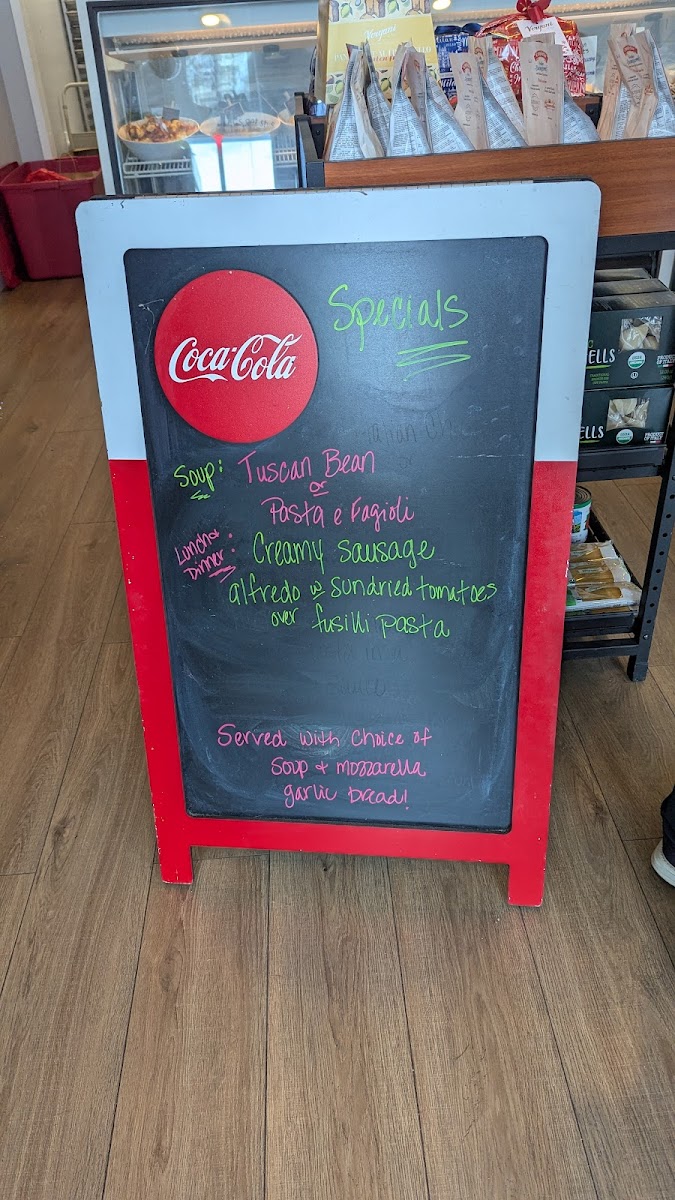 Vergani
Coca-Cola
Specials
Soup: Tuscan Bean
or
Pasta e Fagioli
Lunch & Dinner: Creamy sausage
alfredo w sundried tomatoes
over fusilli pasta
Served with choice of
Soup + mozzarella
garlic bread!
ELLS
ELLS